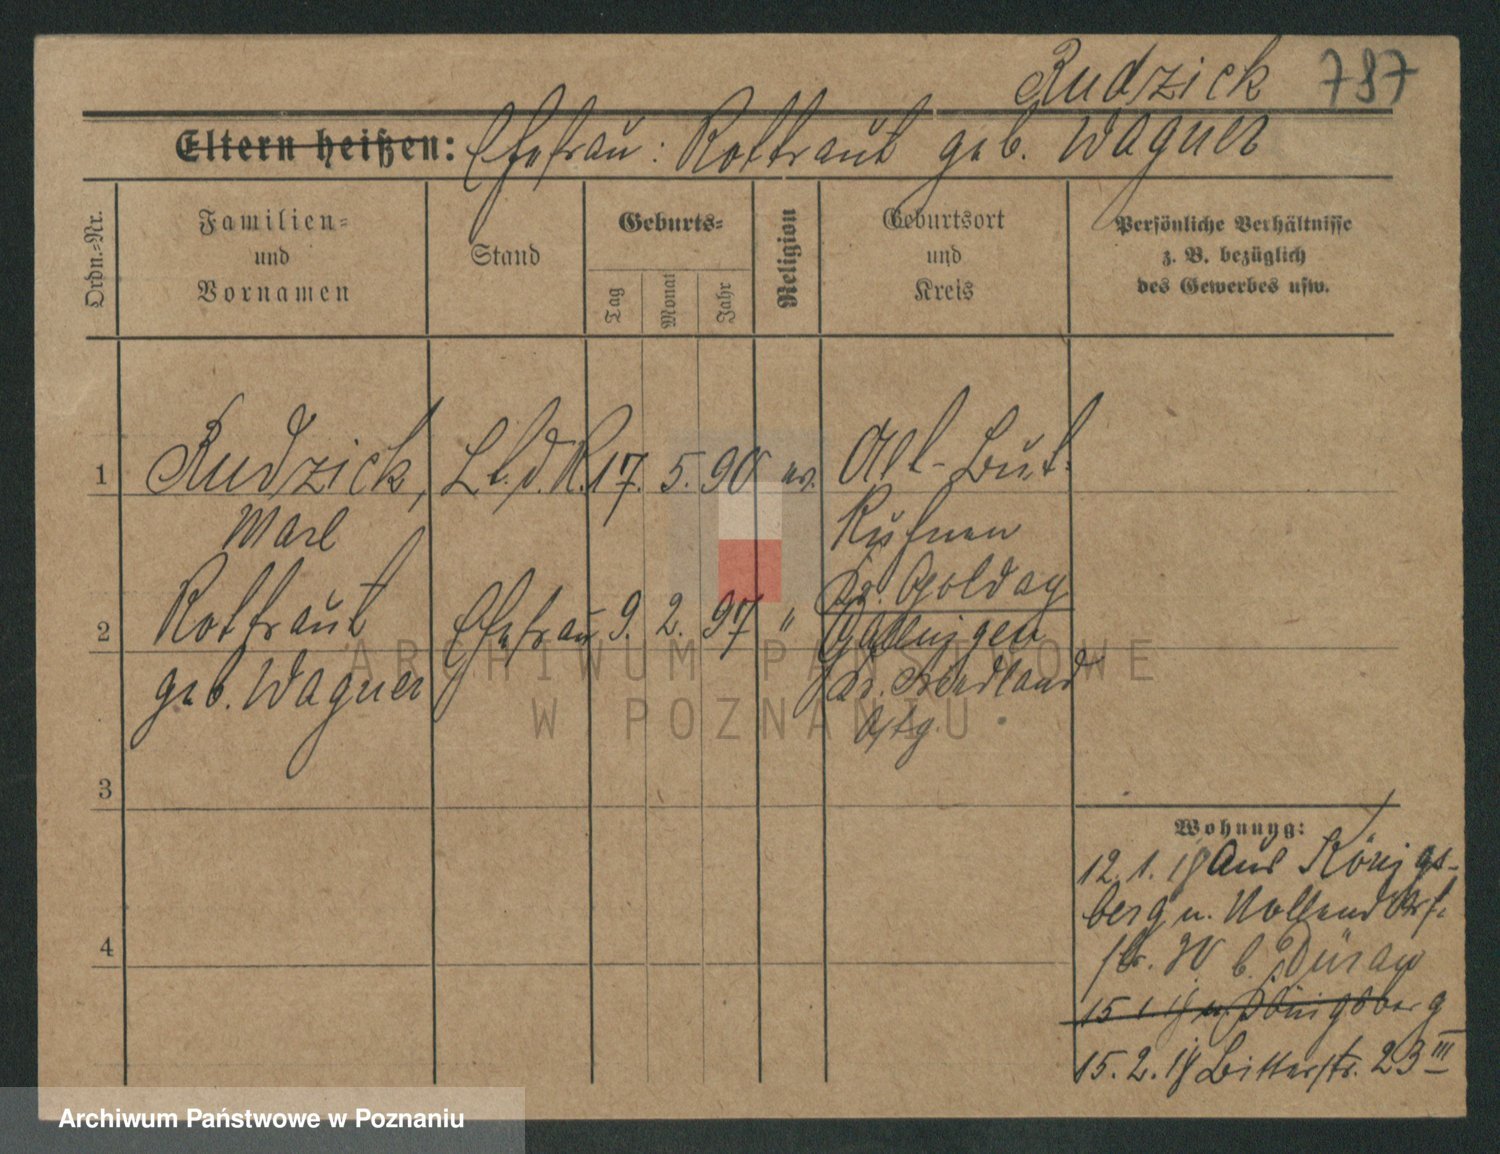 Rudzick 787
Eltern heißen: Ehefrau: Rottraut geb. Wagner
Ordn.-Nr.
Familien-
und
Vornamen
Stand
Geburts-
Tag
Monat
Jahr
Religion
Geburtsort
und
Kreis
Persönliche Verhältnisse
z. B. bezüglich
des Gewerbes usw.
1 Rudzick, Lt. d. R. 17. 5. 90 ev. Alt-But-
Marl Kuhnen
Kr. Goldap
2 Rottraut Ehefrau 9. 2. 97 "
geb. Wagner Kr. Friedland
Ostp.
3
Wohnung:
12. 1. 18 aus Königs-
berg n. Nollendorf-
str. b. Düray
4
15 1. 18 n. Königsberg
15. 2. 18 Bitterstr. 23 III
ARCHIWUM PAŃSTWOWE
W POZNANIU
Archiwum Państwowe w Poznaniu